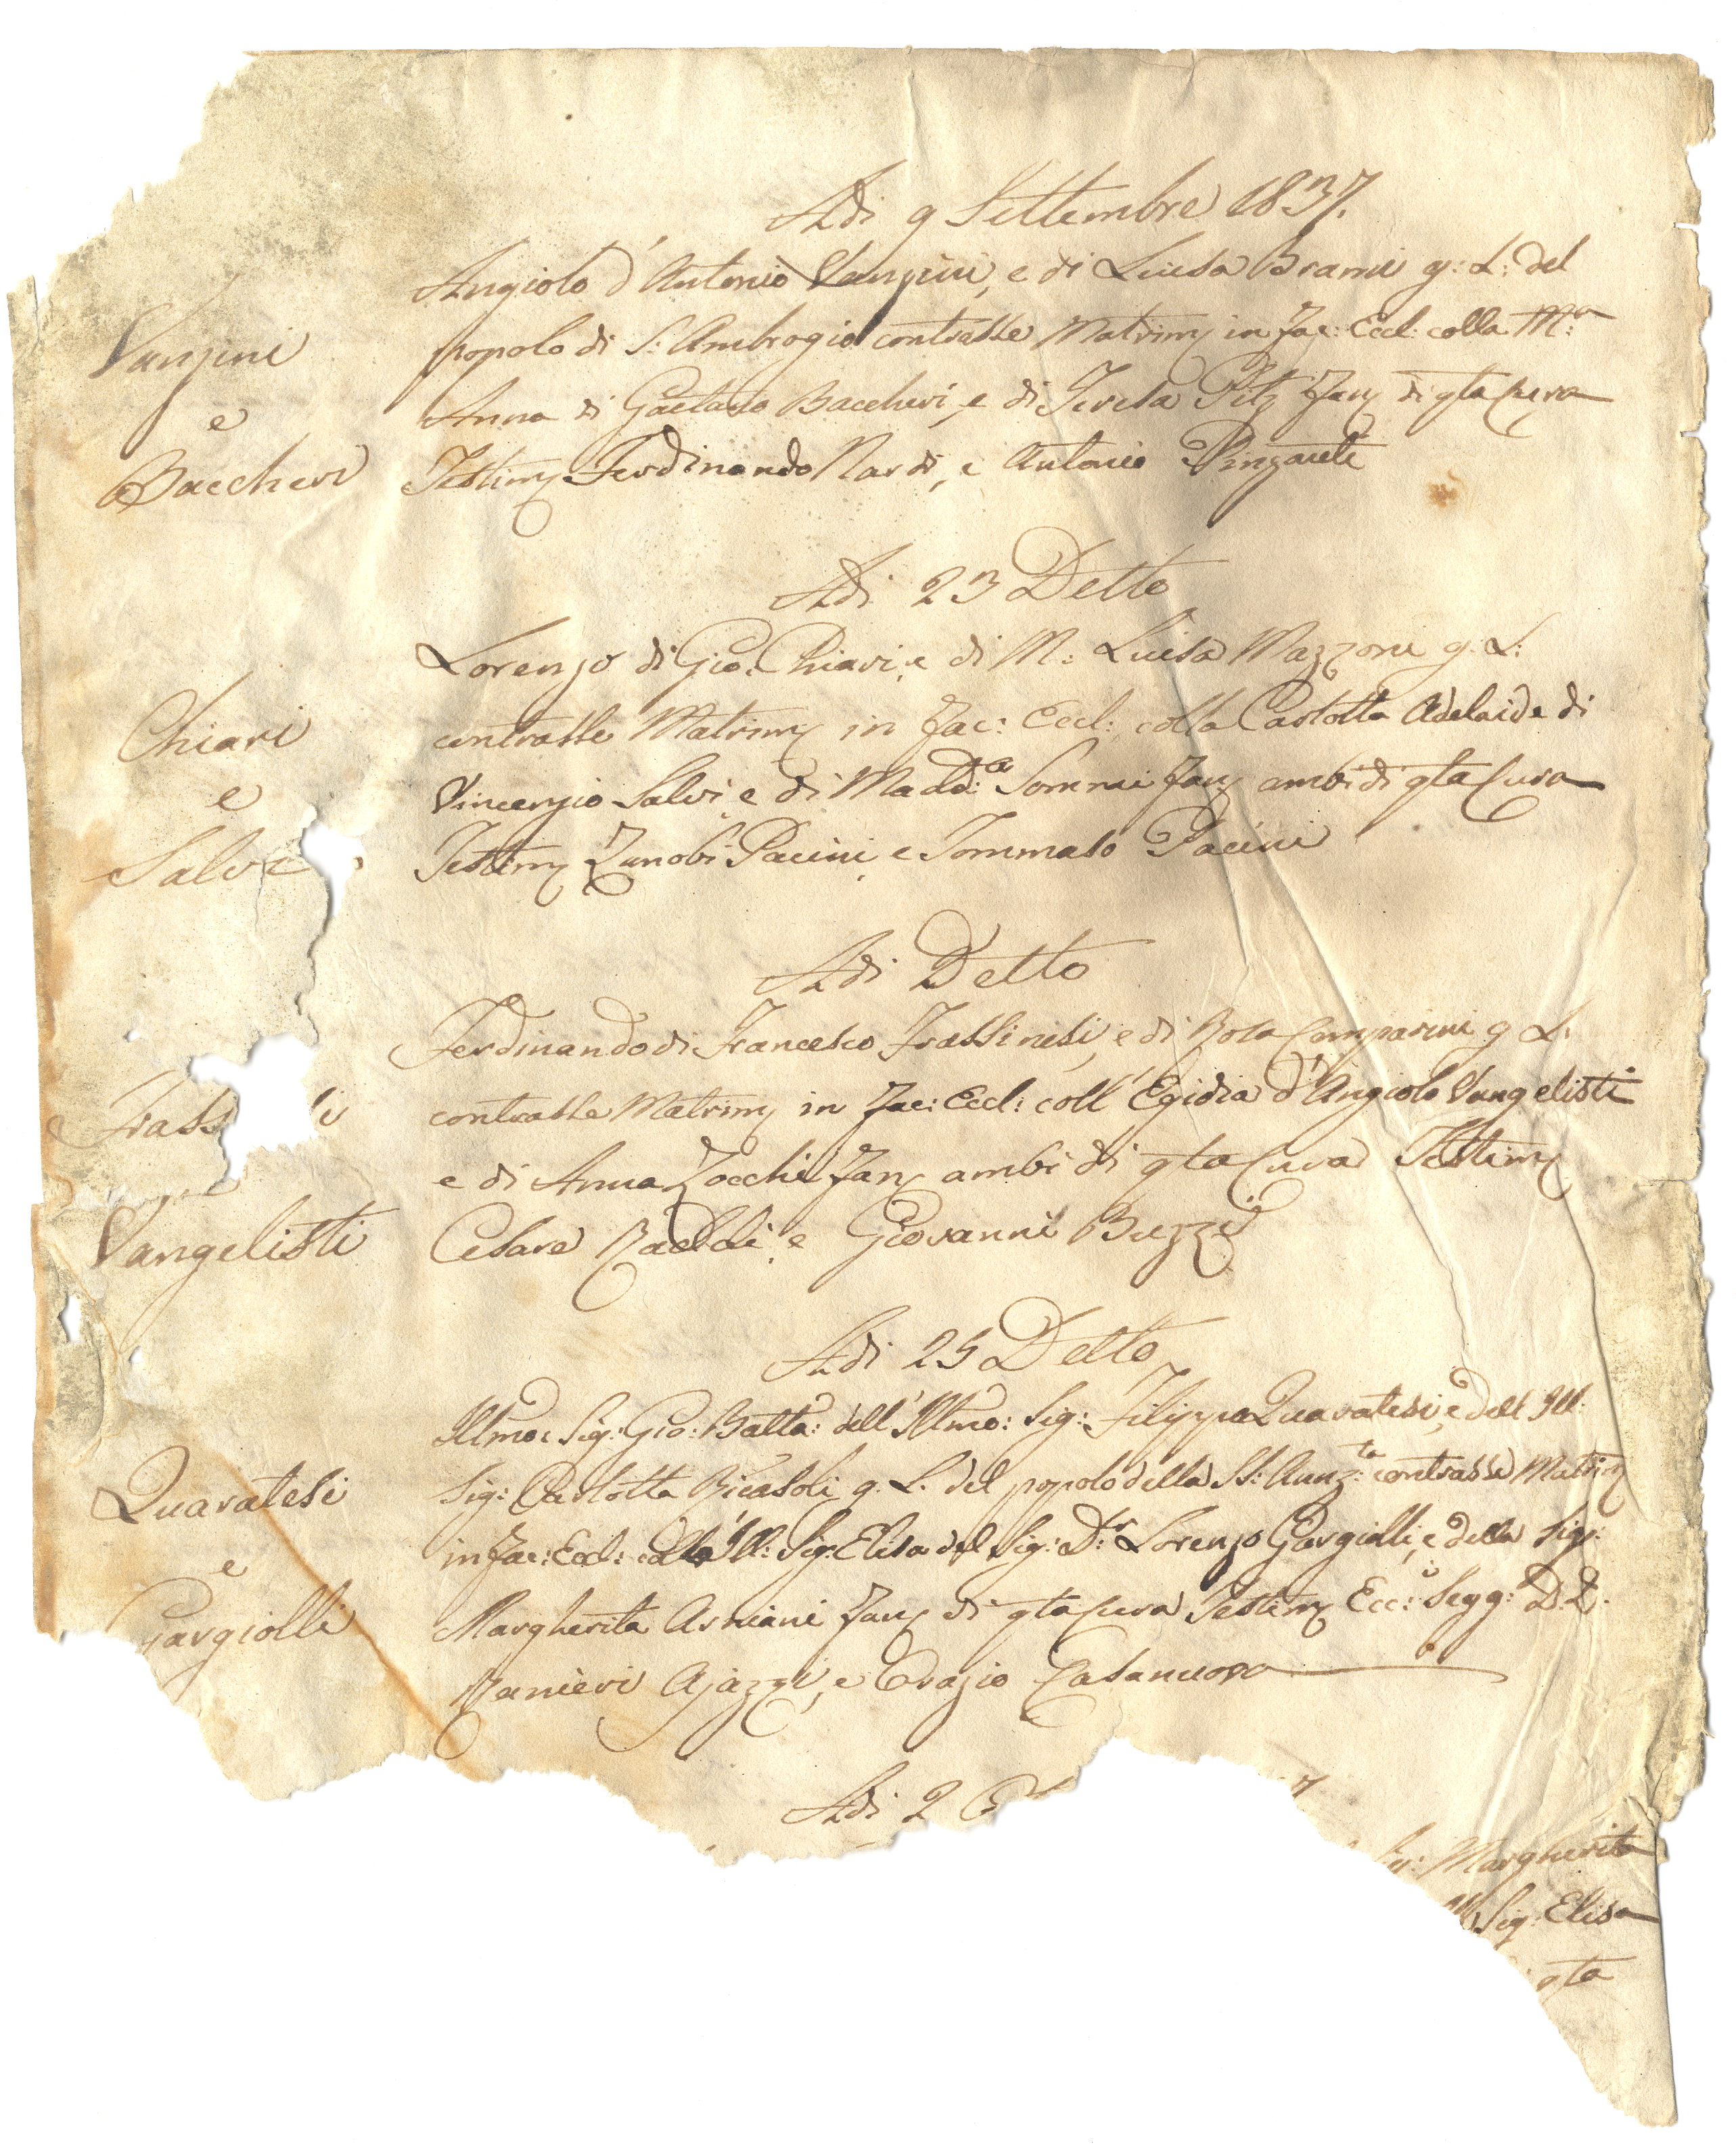 Adi 9 Settembre 1837.
Vanzini
e
Baccheri
Angiolo d'Antonio Vanzini, e di Luisa Brami g: L: del
popolo di S: Ambrogio contrasse Matrim in Fac: Eccl: colla M:a
Anna di Gaetano Baccheri, e di Teresa Pitz Fan di qta Cura
Testim Ferdinando Nardi, e Antonio Pinzauti
Adi 23 Detto
Chiari
e
Salvi
Lorenzo di Gio: Chiari, e di M: Luisa Mazzoni g: L:
contrasse Matrim in Fac: Eccl: colla Carlotta Adelaide di
Vincenzio Salvi e di Madd:a Sommi Fan ambi di qta Cura
Testim Zanobi Pacini, e Tommaso Pacini
Adi Detto
Frass i
Vangelisti
Ferdinando di Francesco Frassinesi, e di Rosa Camparini g L:
contrasse Matrim in Fac: Eccl: coll' Egidia d'Angiolo Vangelisti
e di Anna Zocchi Fan ambi di qta Cura Testim
Cesare Raddi, e Giovanni Buzzi
Adi 25 Detto
Quaratesi
e
Gargiolli
Illmo: Sig: Gio: Batta: dell'Illmo: Sig: Filippo Quaratesi, e dell Ill:
Sig: Carlotta Ricasoli g. L. del popolo della SS: Aunz:ta contrasse Matrim
in Fac: Eccl: colla Ill: Sig: Elisa del Sig: D:r Lorenzo Gargiolli, e della Sig:
Margherita Asmiani Fan di qta Cura Testim Ecc:i Segg:i D.D.
Ranieri Ajazzi, e Orazio Casanuova
Adi 2
Margherita
Sig: Elisa
qta